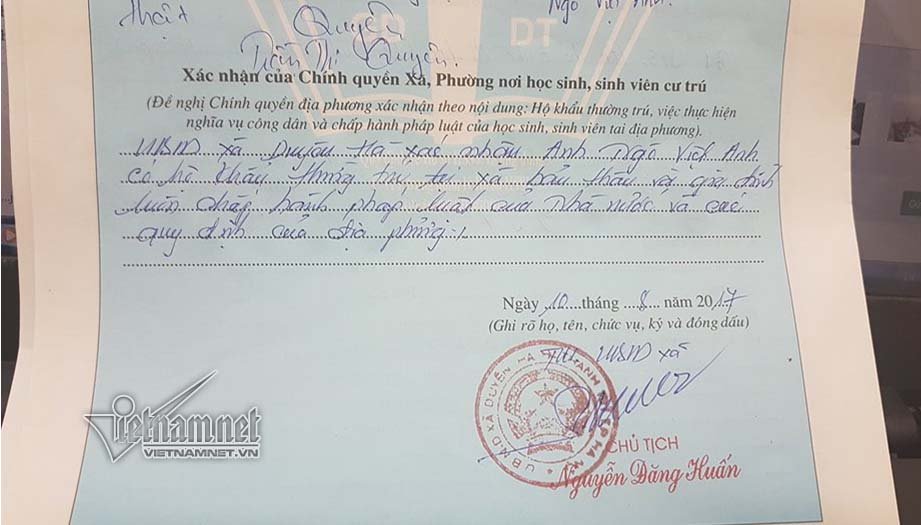 thật
Ngô Việt Anh.
Quyên
Trần Thị Quyên.
DT
Xác nhận của Chính quyền Xã, Phường nơi học sinh, sinh viên cư trú
(Đề nghị Chính quyền địa phương xác nhận theo nội dung: Hộ khẩu thường trú, việc thực hiện
nghĩa vụ công dân và chấp hành pháp luật của học sinh, sinh viên tai địa phương).
UBND xã Duyên Hà xác nhận Anh Ngô Việt Anh
có hộ khẩu thường trú tại xã bản thân và gia đình
luôn chấp hành pháp luật của Nhà nước và các
quy định của địa phương./.
Ngày 10 tháng 8 năm 2017
(Ghi rõ họ, tên, chức vụ, ký và đóng dấu)
TM UBND xã
U.B.N.D XÃ DUYÊN HÀ
CHỦ TỊCH
Nguyễn Đăng Huấn
vietnamnet
VIETNAMNET.VN